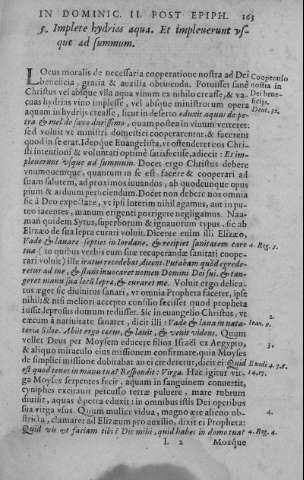 IN DOMINIC. II. POST EPIPH. 163
5. Implete hydrias aqua. Et impleuerunt vs-
que ad summum.
LOcus moralis de necessaria cooperatione nostra ad Dei
beneficia, gratiã & auxilia obtinenda. Potuisset sanè
Christus vel absque vlla aqua vinum ex nihilo creasse, & va-
cuas hydrias vino implesse, vel absque ministrorum opera
aquam in hydrijs creasse, sicut in deserto eduxit aquã de pe-
tra & mel de saxo durissimo, quam postea in vinum verteret:
sed voluit vt ministri domestici cooperarentur, & facerent
quod in se erat. Ideoque Euangelista, vt ostenderet eos Chri-
sti intentioni & voluntati optimè satisfecisse, adiecit: Et im-
pleuerunt vsque ad summum. Docet ergo Christus debere
vnumquemque, quantum in se est facere & cooperari ad
suam salutem, ad proximos iuuandos, ad quodcunque opus
pium & arduum perficiendum. Docet non debere nos omnia
sic à Deo expectare, vt ipsi interim nihil agamus, aut in pu-
teo iacentes, manum erigenti porrigere negligamus. Naa-
man quidem Syrus, superborum & ignauorum typus, sic ab
Elizæo de sua lepra curari voluit. Dicente enim illi Elizæo,
Vade & lauare septies in Iordane, & recipiet sanitatem caro
tua (in quibus verbis eum suæ recuperandæ sanitati coope-
rari voluit) ille iratus recedebat dicens: Putabam quòd egrede-
retur ad me, & stans inuocaret nomen Domini Dei sui, & tan-
geret manu sua locũ lepræ, & curaret me. Voluit ergo delica-
tus æger sic diuinitus sanari, vt omnia Propheta faceret, ipse
nihil; & nisi meliori accepto consilio fecisset quod propheta
iussit, leprosus domum redisset. Sic in euangelio Christus, vt
cæcum à natiuitate sanaret, dicit illi: Vade & laua in nata-
toria Siloe. Abijt ergo cæcus, & lauit, & venit videns. Quum
vellet Deus per Moysem educere filios Israël ex Aegypto,
& aliquo miraculo eius missionem confirmare, quia Moyses
de simplici missione dubitabat an ei crederetur, dicit ei: Quid
est quod tenes in manu tua? Respondit: Virga. Hac igitur vir-
ga Moyses serpentes fecit, aquam in sanguinem conuertit,
cyniphes excitauit percusso terræ puluere, mare rubrum
diuisit, aquas è petra eduxit: in omnibus istis Dei operibus
sua virga vsus. Quum mulier vidua, magno ære alieno ob-
stricta, clamaret ad Elizæum pro auxilio, dixit ei Propheta:
Quid vis vt faciam tibi? Dic mihi, quid habes in domo tua?
L 2 Moxque
Cooperatio
nostra in
Dei bene-
ficijs.
Deut. 32.
4. Reg. 5.
2.
Ioan. 9.
3.
Exodi 4. 7. 8.
14. 17.
4.
4. Reg. 4.